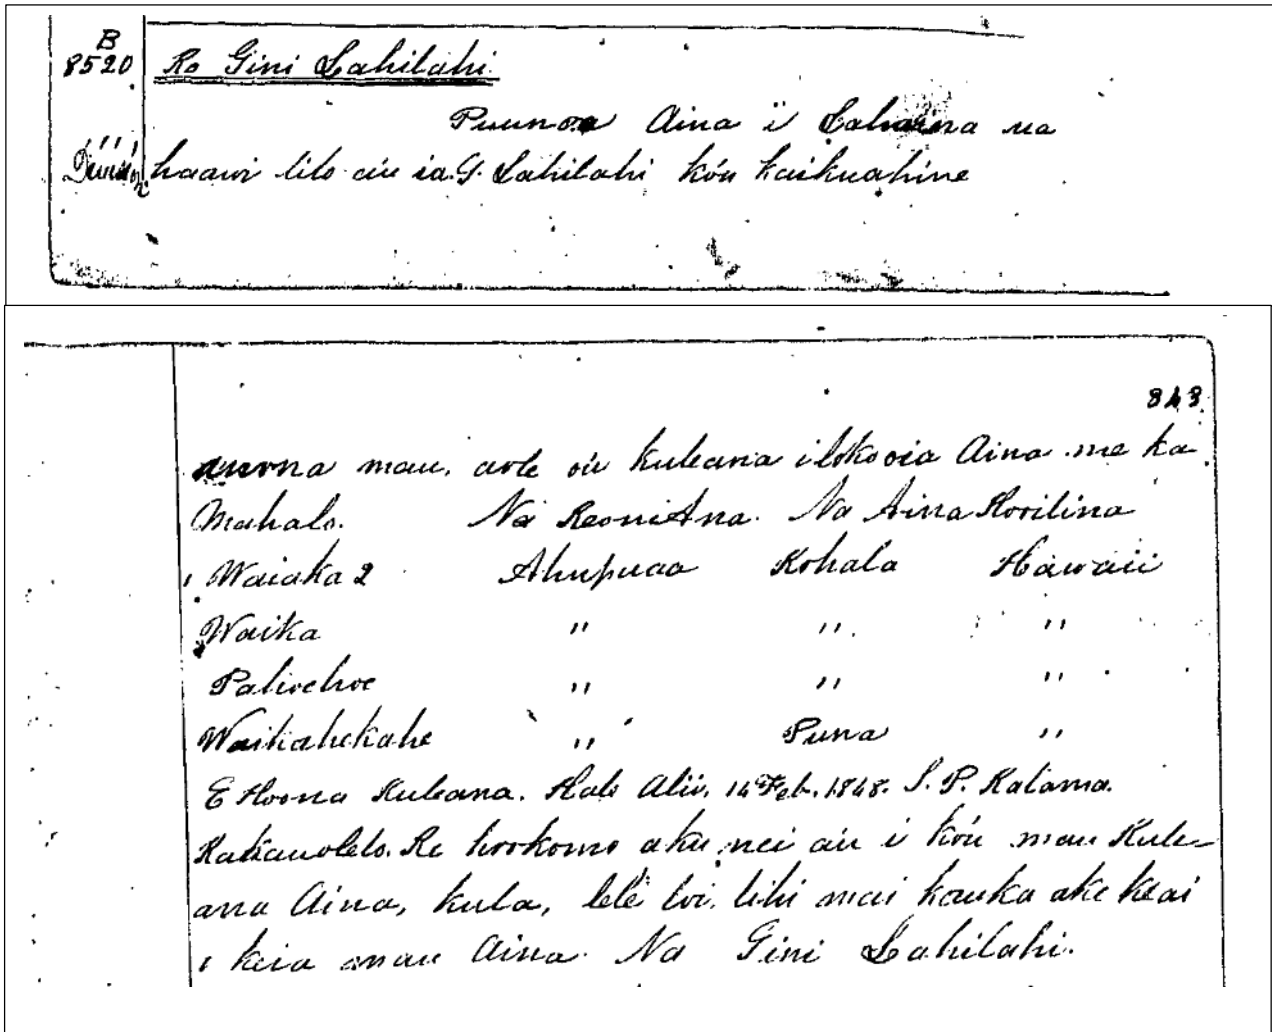 B
8520 Ko Gini Lahilahi.
Puunoa Aina i Lahaina ua
haawi lilo aiu ia G. Lahilahi kóu kaikuahine
343
mau, aole oiu kuleana iloko oia Aina me ka
Mahalo. Na Keoni Ana. Na Aina Hooilina
Waiaka 2 Ahupuaa Kohala Hawaii
Waika " " "
Paliochoe " " "
Waikahekahe " Puna "
E Hoona Kuleana. Hale Alii, 14 Feb. 1848. S. P. Kalama.
Kakauolelo. Ke hookomo aku nei aiu i kóu mau Kule-
ana Aina, kula, lele loi, lihi mai kauka ake keai
i keia mau Aina. Na Gini Lahilahi.